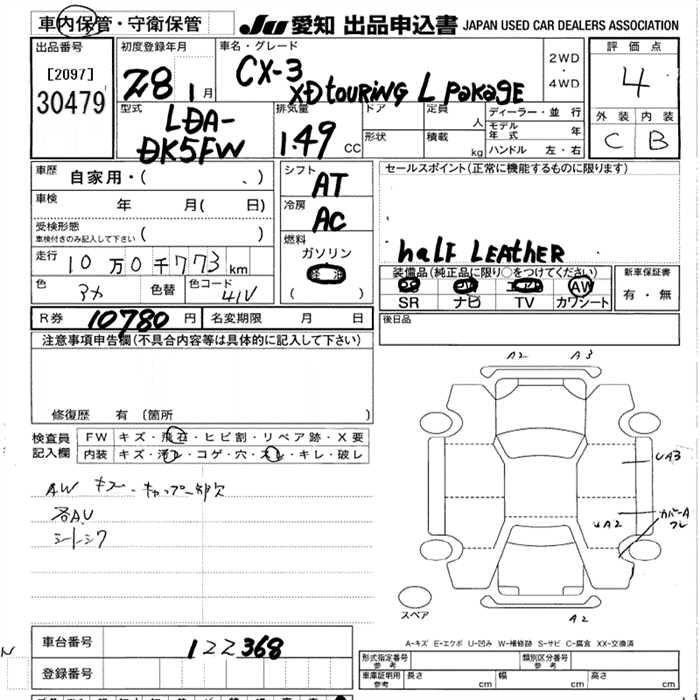 車内保管・守衛保管
JU 愛知 出品申込書 JAPAN USED CAR DEALERS ASSOCIATION
出品番号
[2097]
30479
初度登録年月
28 1月
車名・グレード
CX-3
XD touring L pakage
2WD
・
4WD
評価点
4
外装 内装
C B
型式
LDA-
DK5FW
排気量
1.49 cc
ドア
形状
定員
人
積載
kg
ディーラー・並行
モデル年式 年
ハンドル 左・右
車歴
自家用・( 、)
車検
年 月( 日)
受検形態
車検付きのみ記入して下さい ( )
走行
10万0千773km
色
色替
色コード
41V
シフト
AT
冷房
AC
燃料
ガソリン
( )
セールスポイント(正常に機能するものに限ります)
half LEATHER
装備品(純正品に限り○をつけてください)
AW
SR ナビ TV カワシート
新車保証書
有・無
R券 10780円 名変期限 月 日
後日品
注意事項申告欄(不具合内容等は具体的に記入して下さい)
修復歴 有 (箇所 )
検査員
記入欄
FW キズ・飛石・ヒビ割・リペア跡・X要
内装 キズ・汚レ・コゲ・穴・スレ・キレ・破レ
AW キズ・キャップ一部欠
各AU
A2 A3
UA3
UA2
カバーA
スペア
A2
A-キズ E-エクボ U-凹み W-補修跡 S-サビ C-腐食 XX-交換済
車台番号
122368
登録番号
型式指定番号
参考
類別区分番号
参考
車庫証明用
参考
長さ cm 幅 cm 高さ cm